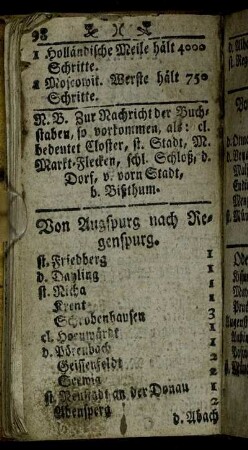 98
1 Holländische Meile hält 4000
Schritte.
1 Moscowit. Werste hält 750
Schritte.
N. B. Zur Nachricht der Buch-
staben, so vorkommen, als: cl.
bedeutet Closter, st. Stadt, M.
Markt-Flecken, schl. Schloß, d.
Dorf, v. vorn Stadt,
b. Bißthum.
Von Augspurg nach Re-
genspurg.
st. Friedberg 1
d. Dasling 1
st. Aicha 1
Krent 1
Schrobenhausen 3
cl. Hoenwardt 1
d. Pörenbach 1
Geissenfeldt 1
st. Neustadt an der Donau 1
Abensperg 2
d. Abach